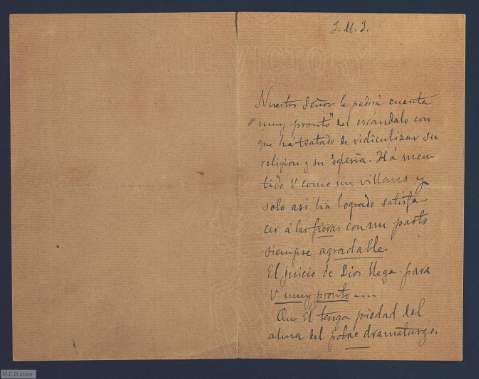 J. M. J.
Nuestro Señor le pedirá cuenta
"muy pronto" del escandalo con
que ha tratado de ridiculizar su
religion y su iglesia. Há men-
tido V como un villano y
solo asi ha logrado satisfa-
cer á las fieras con un pasto
siempre agradable.
El juicio de Dios llega para
V muy pronto....
Que El tenga piedad del
alma del pobre dramaturgo.